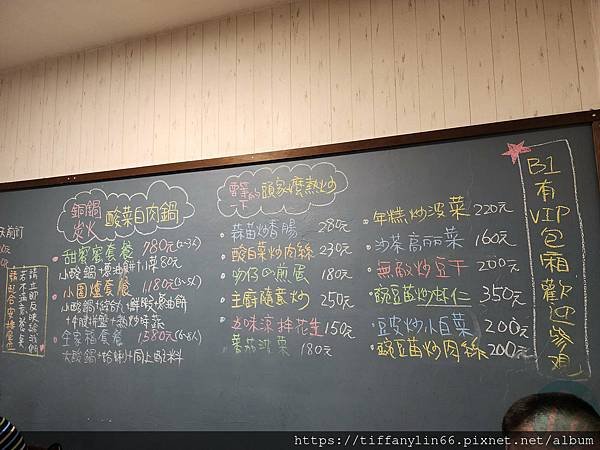 銅鍋
炭火
酸菜白肉鍋
甜蜜蜜套餐 780元(2~3人)
小酸鍋+蔥油餅+小菜80元
小圍爐套餐 1180元(3~5人)
全家福套餐 1580元(6~8人)
大酸鍋+蛤蜊+同上配料
頭家麼熱炒
蒜苗炒香腸 280元
酸白菜炒肉絲 230元
吻仔魚煎蛋 180元
主廚隨意炒 250元
五味涼拌花生 150元
蕃茄菠菜 180元
年糕炒菠菜 220元
沙茶高麗菜 160元
無敵炒豆干 200元
豌豆苗炒蝦仁 350元
豆皮炒小白菜 200元
豌豆苗炒肉絲 200元
B1有VIP包廂歡迎參觀
若不滿意餐點
請立即反映給我們
https://tiffanylin66.pixnet.net/album